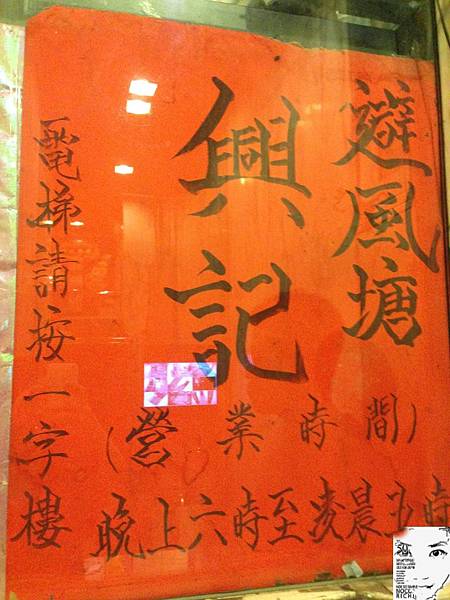 避風塘
興記
(營業時間)
晚上六時至凌晨五時
電梯請按一字樓